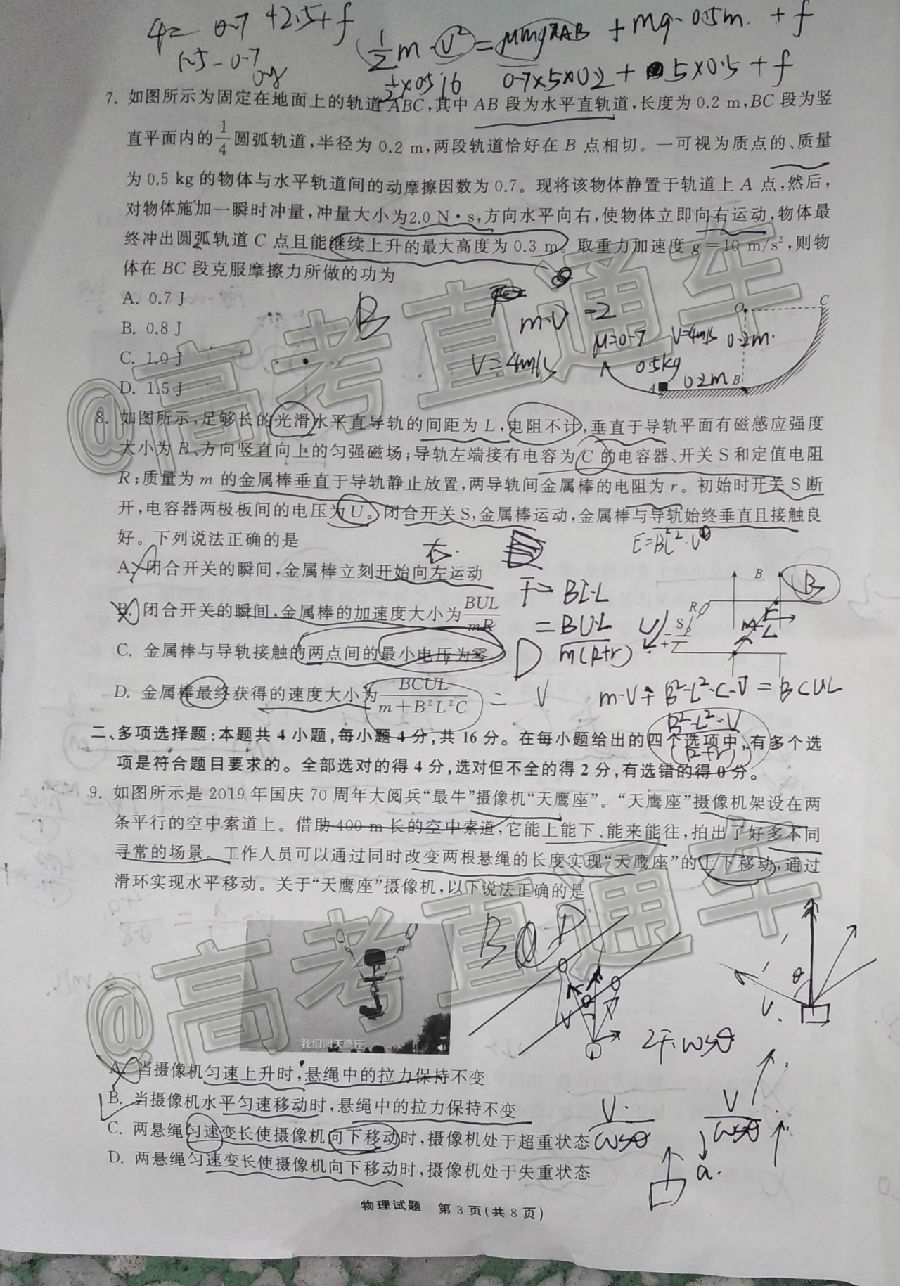 4= 0.7 +2.5+f
½m·v² = μmgxAB + mg·0.5m. + f
½×0.5 16  0.7×5×0.2 + 5×0.5 + f
7. 如图所示为固定在地面上的轨道 ABC,其中 AB 段为水平直轨道,长度为 0.2 m,BC 段为竖
直平面内的 1/4 圆弧轨道,半径为 0.2 m,两段轨道恰好在 B 点相切。一可视为质点的、质量
为 0.5 kg 的物体与水平轨道间的动摩擦因数为 0.7。现将该物体静置于轨道上 A 点,然后,
对物体施加一瞬时冲量,冲量大小为2.0 N·s,方向水平向右,使物体立即向右运动,物体最
终冲出圆弧轨道 C 点且能继续上升的最大高度为 0.3 m。取重力加速度 g=10 m/s²,则物
体在 BC 段克服摩擦力所做的功为
A. 0.7 J
B. 0.8 J
C. 1.0 J
D. 1.5 J
B
m·v =2
V=4m/s
μ=0.7 V=4m/s 0.2m.
0.5kg
0.2m
O C
A B
8. 如图所示,足够长的光滑水平直导轨的间距为 L,电阻不计,垂直于导轨平面有磁感应强度
大小为 B、方向竖直向上的匀强磁场;导轨左端接有电容为 C 的电容器、开关 S 和定值电阻
R;质量为 m 的金属棒垂直于导轨静止放置,两导轨间金属棒的电阻为 r。初始时开关 S 断
开,电容器两极板间的电压为 U。闭合开关 S,金属棒运动,金属棒与导轨始终垂直且接触良
好。下列说法正确的是
A. 闭合开关的瞬间,金属棒立刻开始向左运动
B. 闭合开关的瞬间,金属棒的加速度大小为 BUL/mR
C. 金属棒与导轨接触的两点间的最小电压为零
D. 金属棒最终获得的速度大小为 BCUL/(m+B²L²C)
右.
F= BIL
= BUL
m(R+r)
D
B
R
S
B
= V m·V+ B²·L²·C·V = BCUL
B²·L²·V
(R+r)
二、多项选择题:本题共 4 小题,每小题 4 分,共 16 分。在每小题给出的四个选项中,有多个选
项是符合题目要求的。全部选对的得 4 分,选对但不全的得 2 分,有选错的得 0 分。
9. 如图所示是 2019 年国庆 70 周年大阅兵“最牛”摄像机“天鹰座”。“天鹰座”摄像机架设在两
条平行的空中索道上。借助 400 m 长的空中索道,它能上能下、能来能往,拍出了好多不同
寻常的场景。工作人员可以通过同时改变两根悬绳的长度实现“天鹰座”的上下移动,通过
滑环实现水平移动。关于“天鹰座”摄像机,以下说法正确的是
我们叫天鹰座
2Fcosθ
A. 当摄像机匀速上升时,悬绳中的拉力保持不变
B. 当摄像机水平匀速移动时,悬绳中的拉力保持不变
C. 两悬绳匀速变长使摄像机向下移动时,摄像机处于超重状态
D. 两悬绳匀速变长使摄像机向下移动时,摄像机处于失重状态
V/cosθ
V/cosθ
a.
物理试题 第 3 页(共 8 页)
@高考直通车
@高考直通车